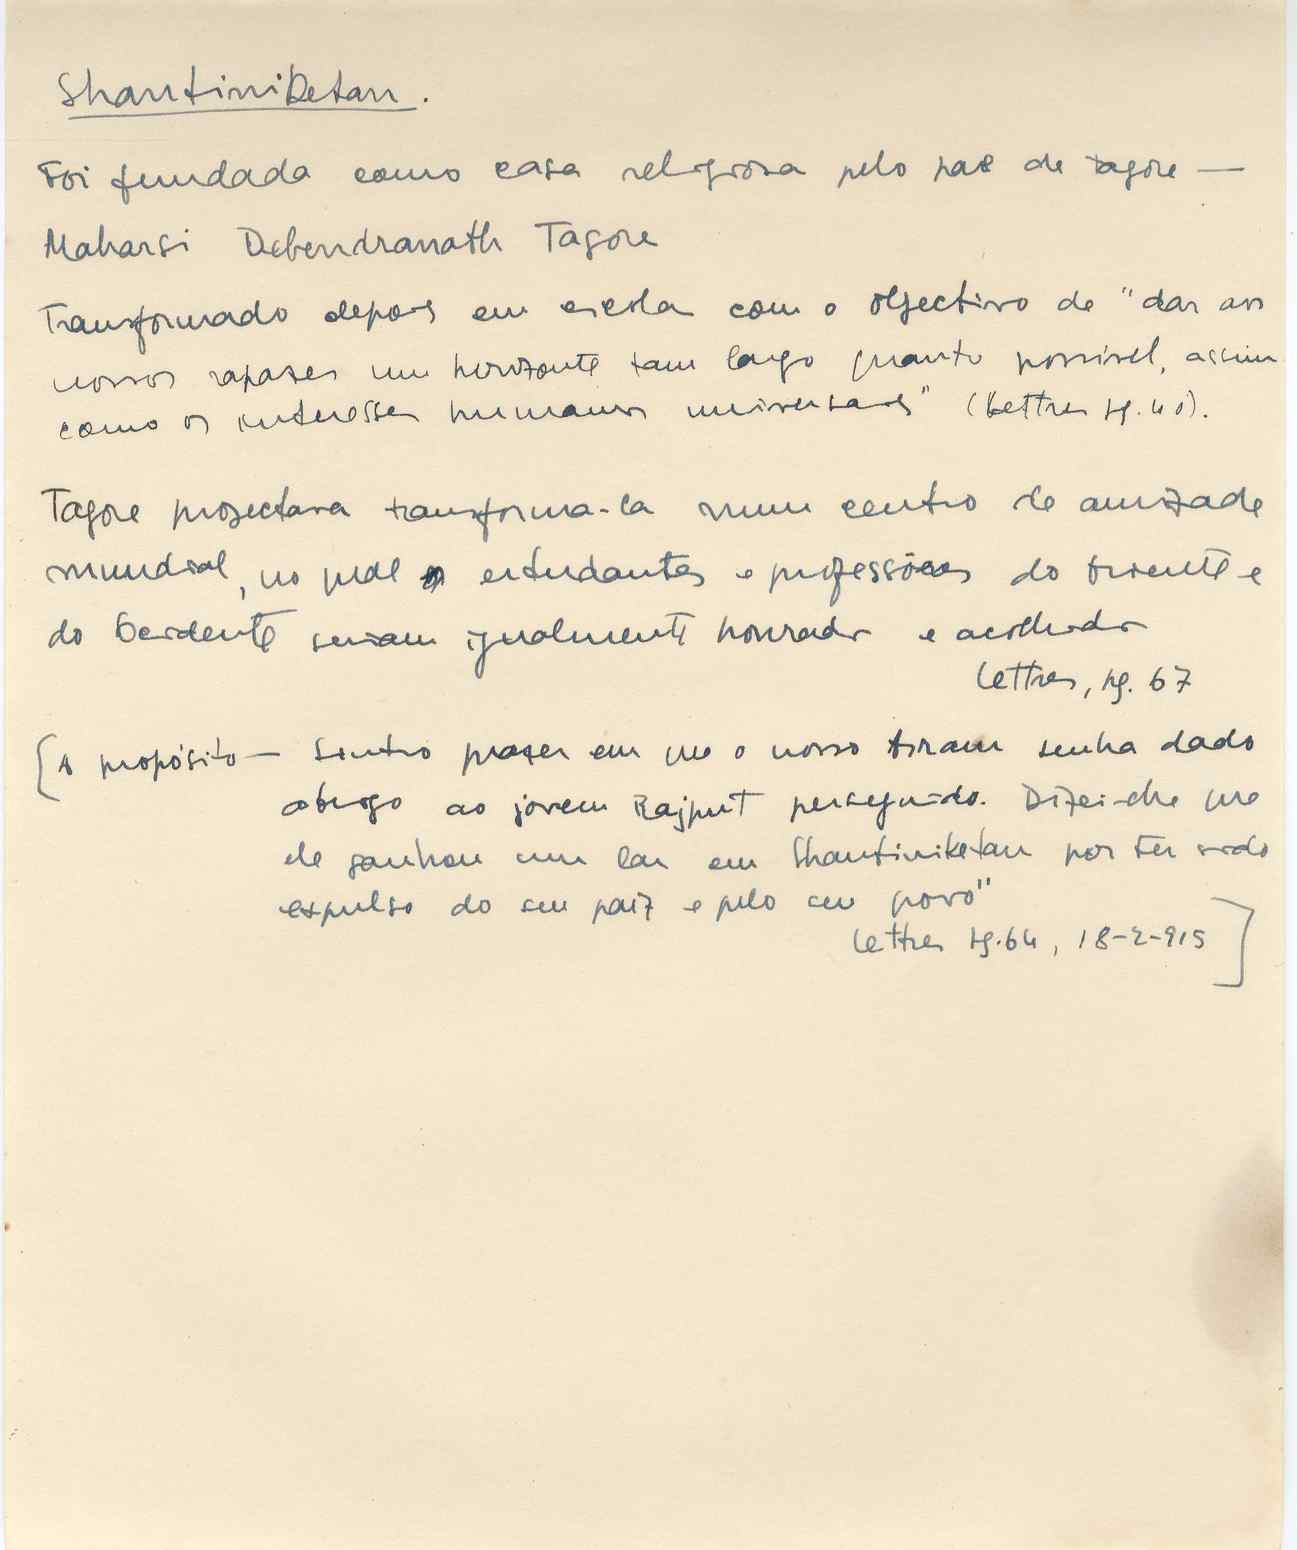 Shantiniketan.
Foi fundada como casa religiosa pelo pae de Tagore —
Maharsi Debendranath Tagore
Transformado depois em escola com o objectivo de "dar aos
nossos rapazes um horizonte tam largo quanto possivel, assim
como os interesses humanos universaes" (Lettres pg. 40).
Tagore projectava transforma-la num centro de amizade
mundial, no qual estudantes e professôres do Oriente e
do Occidente seriam igualmente honrados e acolhidos
Lettres, pg. 67
[A propósito — Sinto prazer em que o nosso tenha dado
abrigo ao jovem Rajput perseguido. Dizei-lhe que
ele ganhou um lar em Shantiniketan por ter sido
expulso do seu paiz e pelo seu povo"
Lettres pg. 64, 18-2-915]